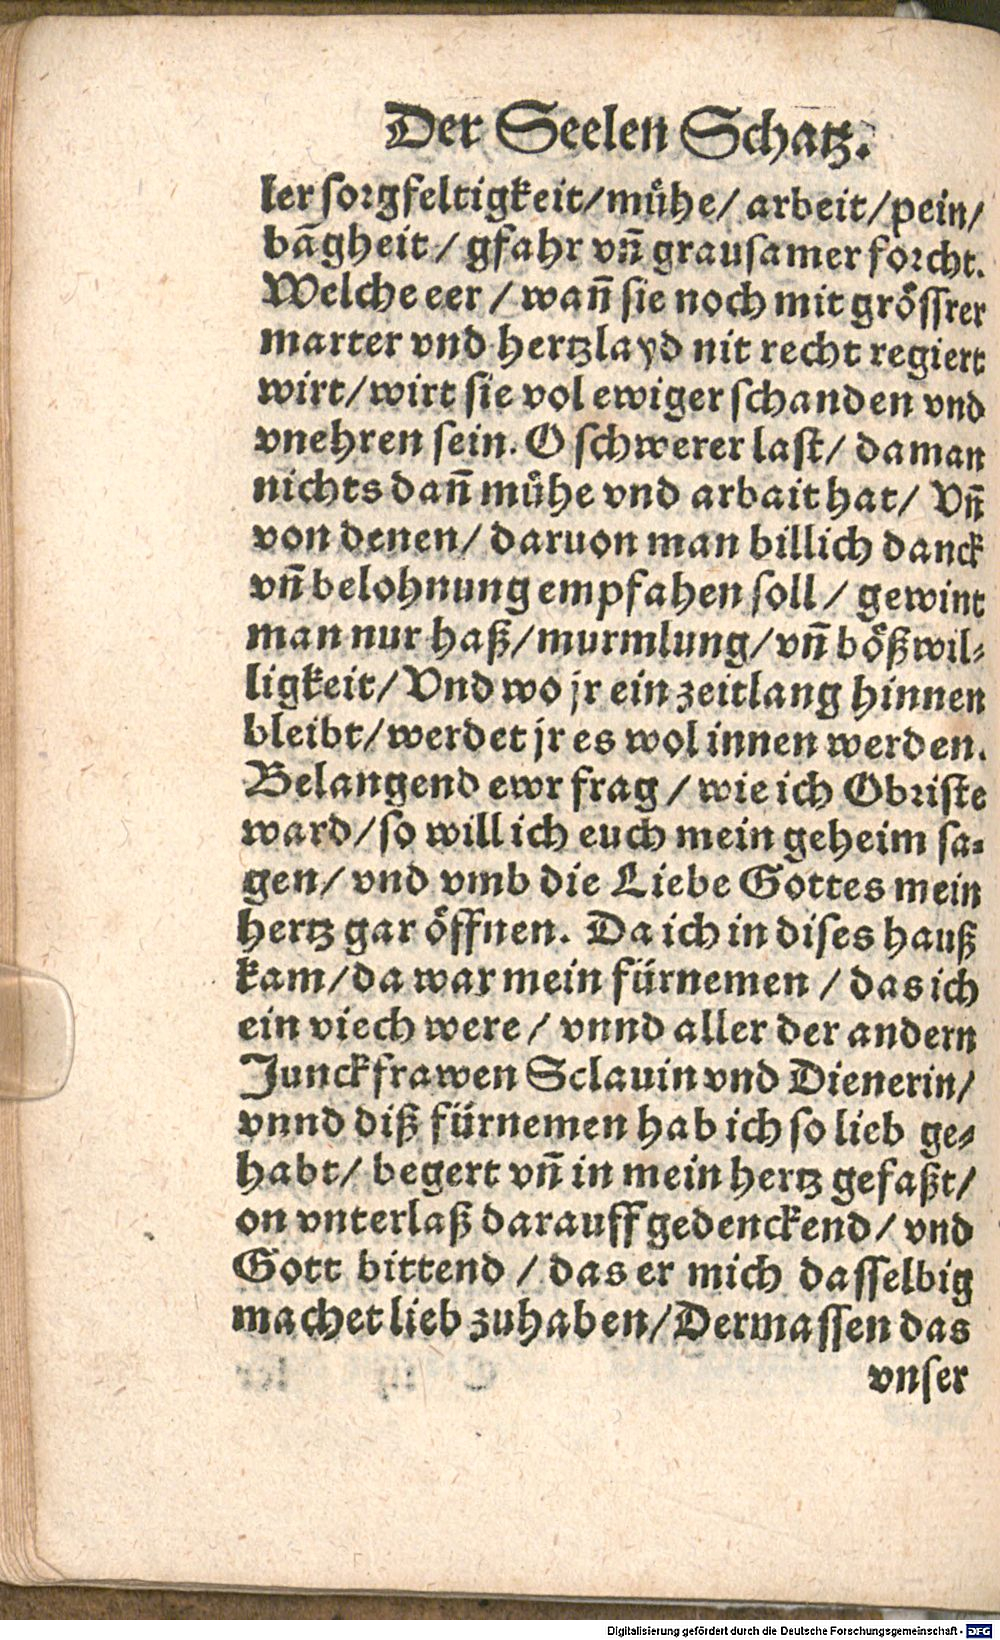 Der Seelen Schatz.
ler sorgfeltigkeit/mühe/ arbeit/pein/
bãgheit / gfahr vñ grausamer forcht.
Welche eer / wañ sie noch mit grössrer
marter vnd hertzlayd nit recht regiert
wirt/wirt sie vol ewiger schanden vnd
vnehren sein. O schwerer last/ da man
nichts dañ mühe vnd arbait hat/ Vñ
von denen/ daruon man billich danck
vñ belohnung empfahen soll / gewint
man nur haß/murmlung/vñ bößwil-
ligkeit/Vnd wo jr ein zeitlang hinnen
bleibt/werdet jr es wol innen werden.
Belangend ewr frag / wie ich Obriste
ward/so will ich euch mein geheim sa-
gen/ vnd vmb die Liebe Gottes mein
hertz gar öffnen. Da ich in dises hauß
kam/da war mein fürnemen / das ich
ein viech were / vnnd aller der andern
Junckfrawen Sclauin vnd Dienerin/
vnnd diß fürnemen hab ich so lieb ge-
habt/ begert vñ in mein hertz gefaßt/
on vnterlaß darauff gedenckend/ vnd
Gott bittend / das er mich dasselbig
machet lieb zuhaben/Dermassen das
vnser
Digitalisierung gefördert durch die Deutsche Forschungsgemeinschaft - DFG